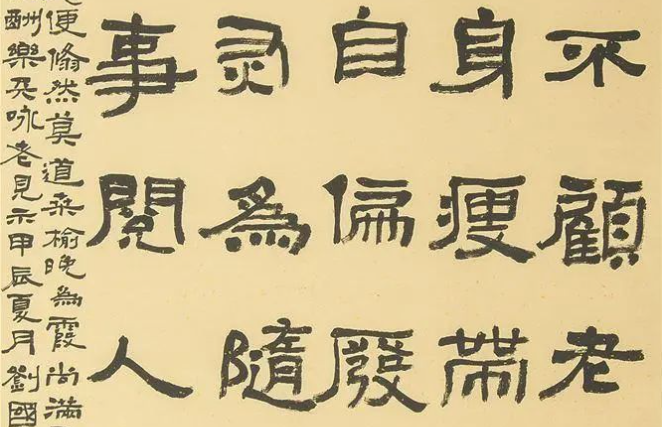 不顧老
身瘦帶
自偏廢
灸為隨
事閱人
便翛然莫道桑榆晚為霞尚滿
酬樂天咏老見示甲辰夏月劉國